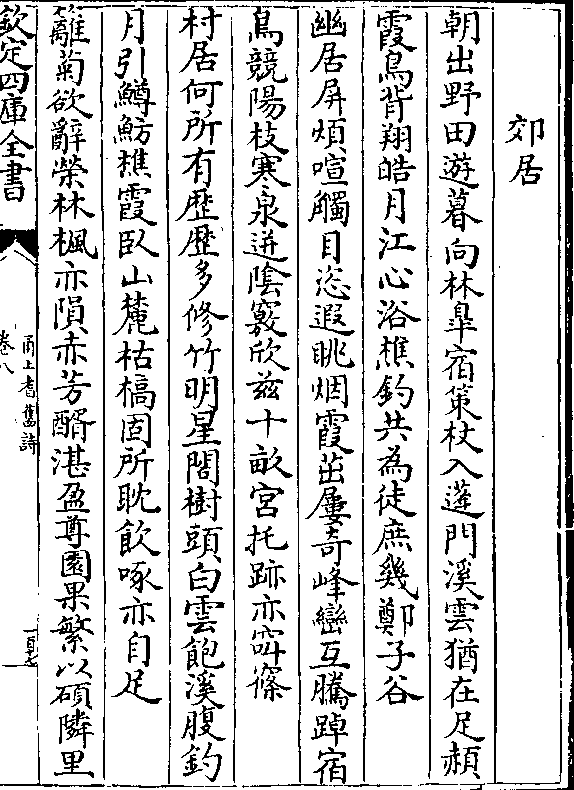 郊居
朝出野田遊暮向林臯宿策杖入蓬門溪雲猶在足赬
霞鳥背翔皓月江心浴樵釣共為徒庶幾鄭子谷
幽居屏煩喧觸目恣遐眺烟霞茁屢奇峰巒互騰踔宿
鳥競陽枝寒泉迸陰竅欣兹十畝宮托跡亦窈窱
村居何所有歴歴多修竹明星閣樹頭白雲飽溪腹釣
月引鱒魴樵霞臥山麓枯槁固所耽飲啄亦自足
籬菊欲辭榮林楓亦隕赤芳醑湛盈尊園果繁以碩隣里
欽定四庫全書
甬上耆舊詩
卷八